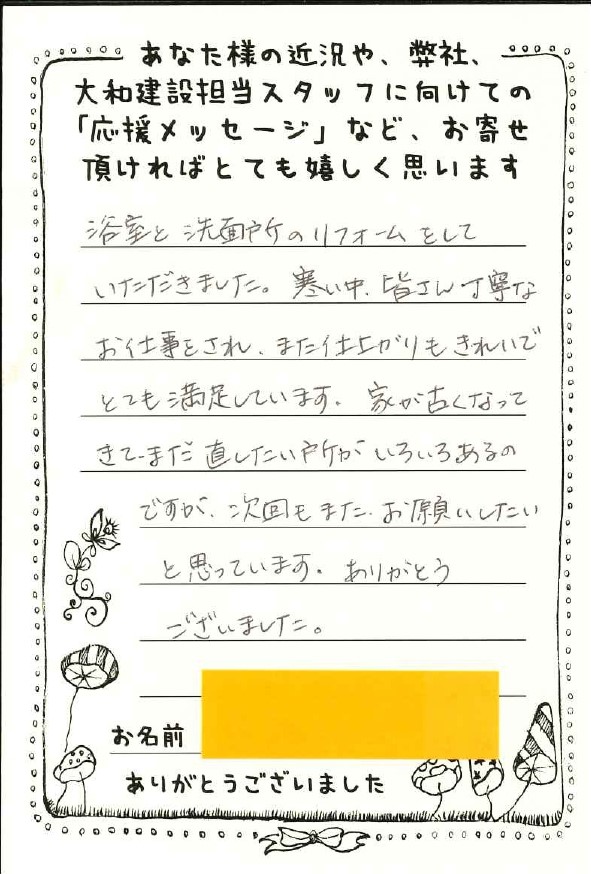 あなた様の近況や、弊社、
大和建設担当スタッフに向けての
「応援メッセージ」など、お寄せ
頂ければとても嬉しく思います
浴室と洗面所のリフォームをして
いただきました。寒い中、皆さん丁寧な
お仕事をされ、また仕上がりもきれいで
とても満足しています。家が古くなって
きて、まだ直したい所がいろいろあるの
ですが、次回もまた、お願いしたい
と思っています。ありがとう
ございました。
お名前
ありがとうございました